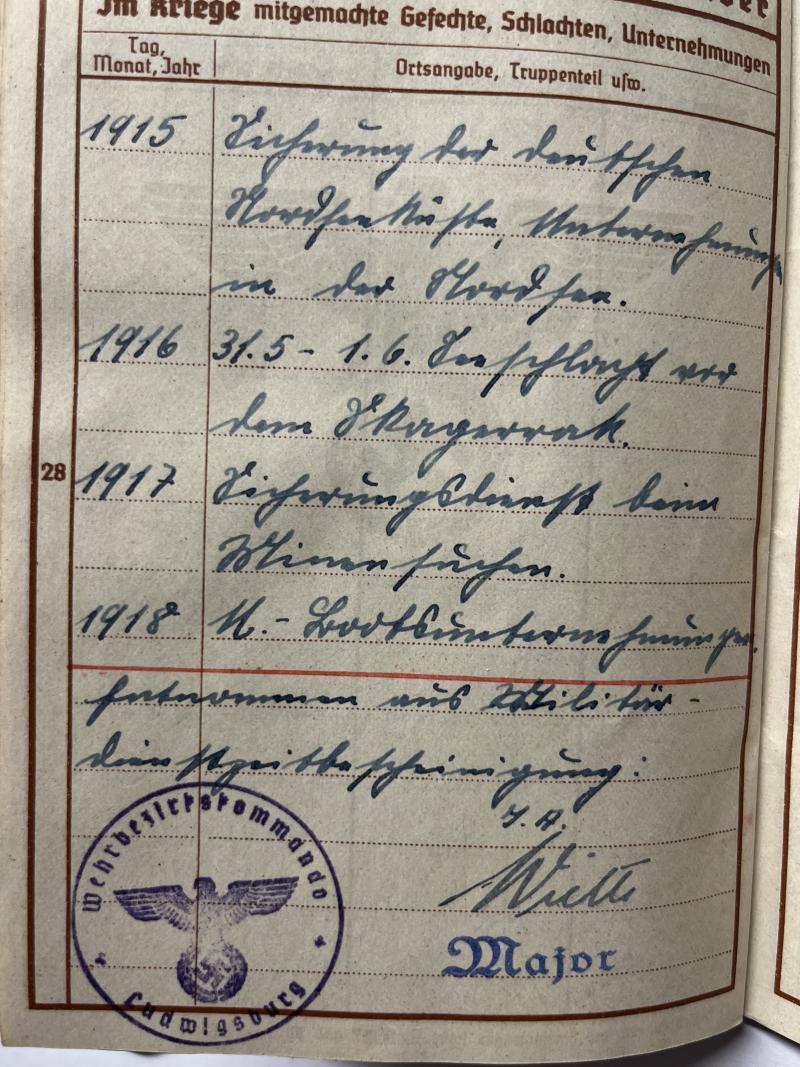 Im Kriege mitgemachte Gefechte, Schlachten, Unternehmungen
Tag,
Monat, Jahr
Ortsangabe, Truppenteil usw.
1915 Sicherung der deutschen
Nordseeküste, Unternehmungen
in der Nordsee.
1916 31.5 - 1.6. Seeschlacht vor
dem Skagerrak.
28
1917 Sicherungsdienst beim
Minensuchen.
1918 U.-Bootsunternehmungen.
Entnommen aus Militär-
dienstzeitbescheinigung:
I. A.
Major
Wehrbezirkskommando
Ludwigsburg